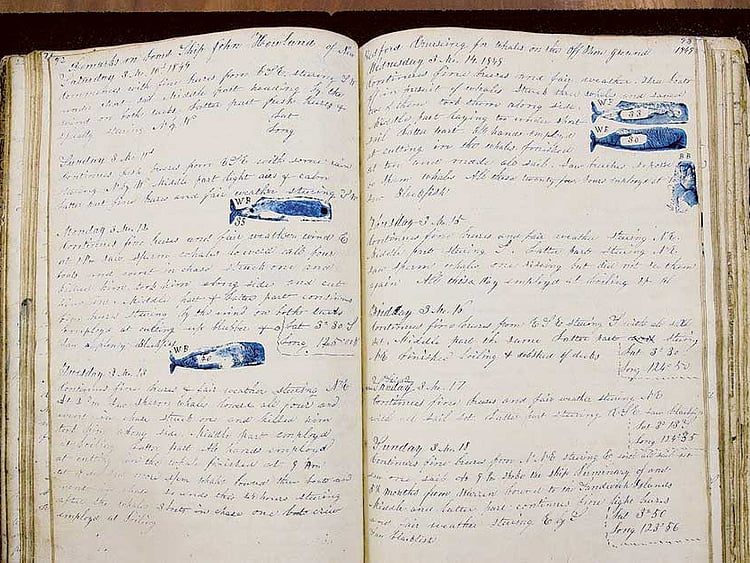 Remarks on board Ship John Howland of New
Saturday 3 Mo. 10th 1849
Continues with fine breezes from E.S.E. steering
made sail Middle part heading by the
wind on both tacks latter part fresh breezes &
steering N.
Lat
Long
Sunday 3 Mo. 11th
Continues fresh breezes from E.S.E. with some rain
Middle part light airs & calm
latter part fine breezes and fair weather steering
WB
35
Monday 3 Mo. 12
Continues fine breezes and fair weather wind E
at 1 PM saw sperm whales lowered all four
boats and went in chase struck one and
killed him took him along side and cut
him in. Middle part & latter part continues
fine breezes steering by the wind on both tacks
employed at cutting up blubber &
saw a plenty Blackfish
Lat 3° 30 S
Long 125° 08
WB
40
Tuesday 3 Mo. 13
Continues fine breezes & fair weather steering N.E.
At 3 PM saw sperm whales lowered all four and
went in chase struck one and killed him
took him along side. Middle part employed
at boiling latter part all hands employed
at cutting in the whale finished at 9 AM
saw sperm whales lowered three boats and
went in chase so ends this 24 hours steering
after the whales 3 boats in chase one boats crew
employed at boiling
Bedford Cruising for whales on the Off Shore Ground
93
1849
Wednesday 3 Mo. 14 1849
Continues fine breezes and fair weather three boats
off in pursuit of whales struck three whales and saved
two of them took them along side
Middle part laying too under short
sail latter part all hands employed
at cutting in the whales finished
at and made all sail.
sperm whales All these twenty four hours employed at boiling
saw Blackfish
WB
33
WB
30
BB
Thursday 3 Mo. 15
Continues fine breezes and fair weather steering N.E.
Middle part steering S. Latter part steering N.E.
saw sperm whales once rising but did not see them
again All these day employed at boiling
Friday 3 Mo. 16
Continues fine breezes from E.S.E. steering S with all sail
set. Middle part the same Latter part steering
N.E. finished boiling & washed off decks
Lat 3° 30
Long 124° 50
Saturday 3 Mo. 17
Continues fine breezes and fair weather steering N.E.
and all sail set. Latter part steering saw blackfish
Lat 3° 13 S
Long 124° 35
Sunday 3 Mo. 18
Continues fine breezes from N.NE steering E with all sail set
saw one sail at 9 PM spoke the ship Luminary of and
months from Warren bound to the Sandwich Islands
Middle and latter part continues fine light breezes
and fair weather steering E by S
saw blackfish
Lat 3° 50
Long 123° 56